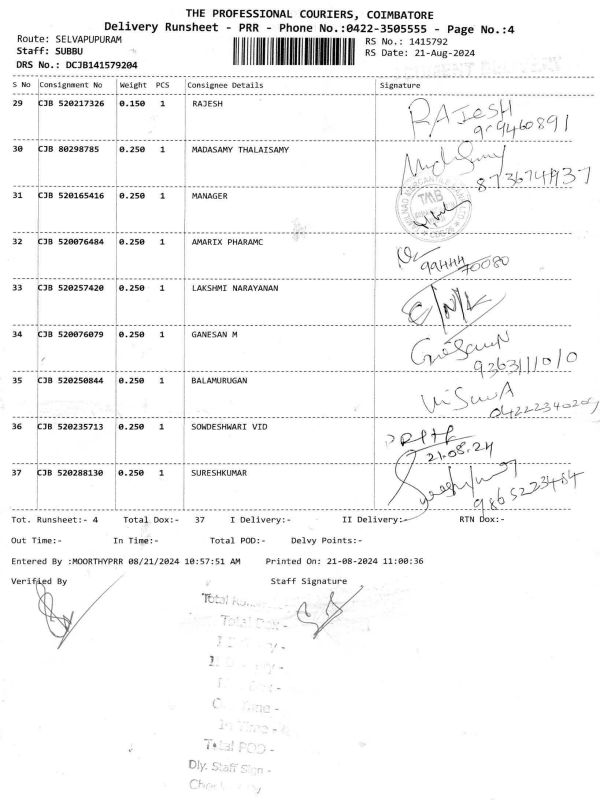 THE PROFESSIONAL COURIERS, COIMBATORE
Delivery Runsheet - PRR - Phone No.:0422-3505555 - Page No.:4
Route: SELVAPUPURAM
RS No.: 1415792
Staff: SUBBU
RS Date: 21-Aug-2024
DRS No.: DCJB141579204
S No Consignment No Weight PCS Consignee Details Signature
29 CJB 520217326 0.150 1 RAJESH RAJESH
30 CJB 80298785 0.250 1 MADASAMY THALAISAMY
31 CJB 520165416 0.250 1 MANAGER
TMB
32 CJB 520076484 0.250 1 AMARIX PHARAMC
99444 70080
33 CJB 520257420 0.250 1 LAKSHMI NARAYANAN
34 CJB 520076079 0.250 1 GANESAN M
9363111010
35 CJB 520250844 0.250 1 BALAMURUGAN
36 CJB 520235713 0.250 1 SOWDESHWARI VID
21.08.24
37 CJB 520288130 0.250 1 SURESHKUMAR
9865223484
Tot. Runsheet:- 4 Total Dox:- 37 I Delivery:- II Delivery:- RTN Dox:-
Out Time:- In Time:- Total POD:- Delvy Points:-
Entered By :MOORTHYPRR 08/21/2024 10:57:51 AM Printed On: 21-08-2024 11:00:36
Verified By Staff Signature
Total Dox -
In Time -
Total POD -
Dly. Staff Sign -